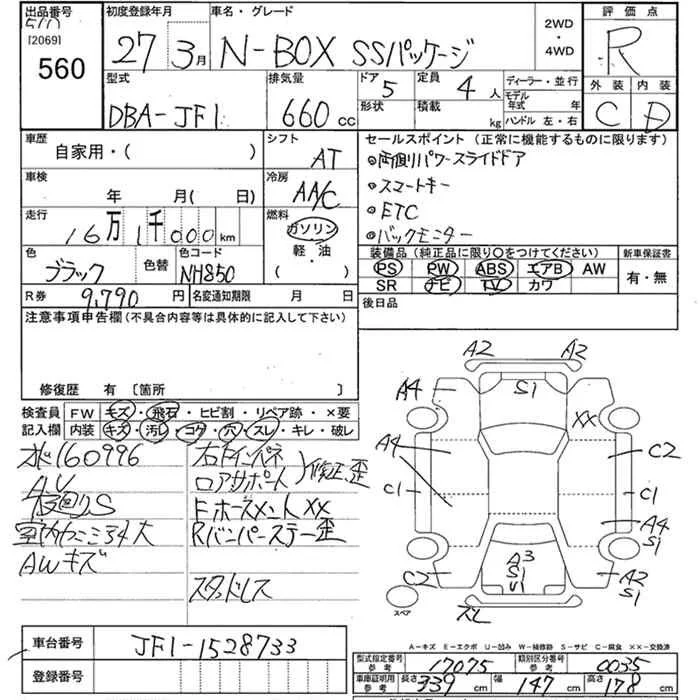 出品番号 初度登録年月 車名・グレード 2WD・4WD 評価点
5/17
[2069]
560
27年 3月 N-BOX SSパッケージ R
型式 排気量 ドア 5 定員 4人 ディーラー・並行 外装 内装
DBA-JF1 660cc 形状 積載 kg モデル年式 年 C D
ハンドル 左・右
車歴 シフト セールスポイント (正常に機能するものに限ります)
自家用・( ) AT
・両側パワースライドドア
車検 冷房
年 月( 日) AA/C
・スマートキー
・ETC
走行 燃料
16万1千000km ガソリン
・バックモニター
軽・油
・
( )
色 色替 色コード
ブラック NH850
装備品 (純正品に限り○をつけてください) 新車保証書
PS PW ABS エアB AW 有・無
SR ナビ TV カワ
R券 9,790円 名変通知期限 月 日
後日品
注意事項申告欄 (不具合内容等は具体的に記入して下さい)
修復歴 有 〔箇所 〕
検査員 FW キズ・飛石・ヒビ割・リペア跡・×要
記入欄 内装 キズ・汚レ・コゲ・穴・スレ・キレ・破レ
水 160996
右Fインパネ
ロアサポート 修正歪
AV
Fホースメント XX
室内 大
Rバンパーステー歪
AWキズ
スタッドレス
A2 A2
A4 S1
XX
A4 C2
C1 C1
A4
S1
A3
S1
U1
C2 A2
S1
スペア
スレ
車台番号 JF1-1528733
登録番号
A-キズ E-エクボ U-凹み W-補修跡 S-サビ C-腐食 XX-交換済
型式指定番号 参考 17075 類別区分番号 参考 0035
車庫証明用 参考 長さ 339cm 幅 147cm 高さ 178cm